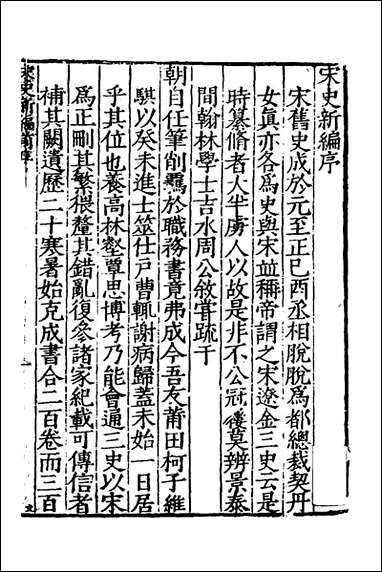 宋史新編序
宋舊史成於元至正己酉丞相脫脫爲都總裁契丹
女真亦各爲史與宋並稱帝謂之宋遼金三史云是
時纂脩者大半虜人以故是非不公冠屨莫辨景泰
間翰林學士吉水周公敘嘗疏于
朝自任筆削羈於職務書竟弗成今吾友莆田柯子維
騏以癸未進士筮仕戶曹輒謝病歸蓋未始一日居
乎其位也養高林壑覃思博考乃能會通三史以宋
爲正刪其繁猥釐其錯亂復參諸家紀載可傳信者
補其闕遺歷二十寒暑始克成書合二百卷而三百
宋史新編前序